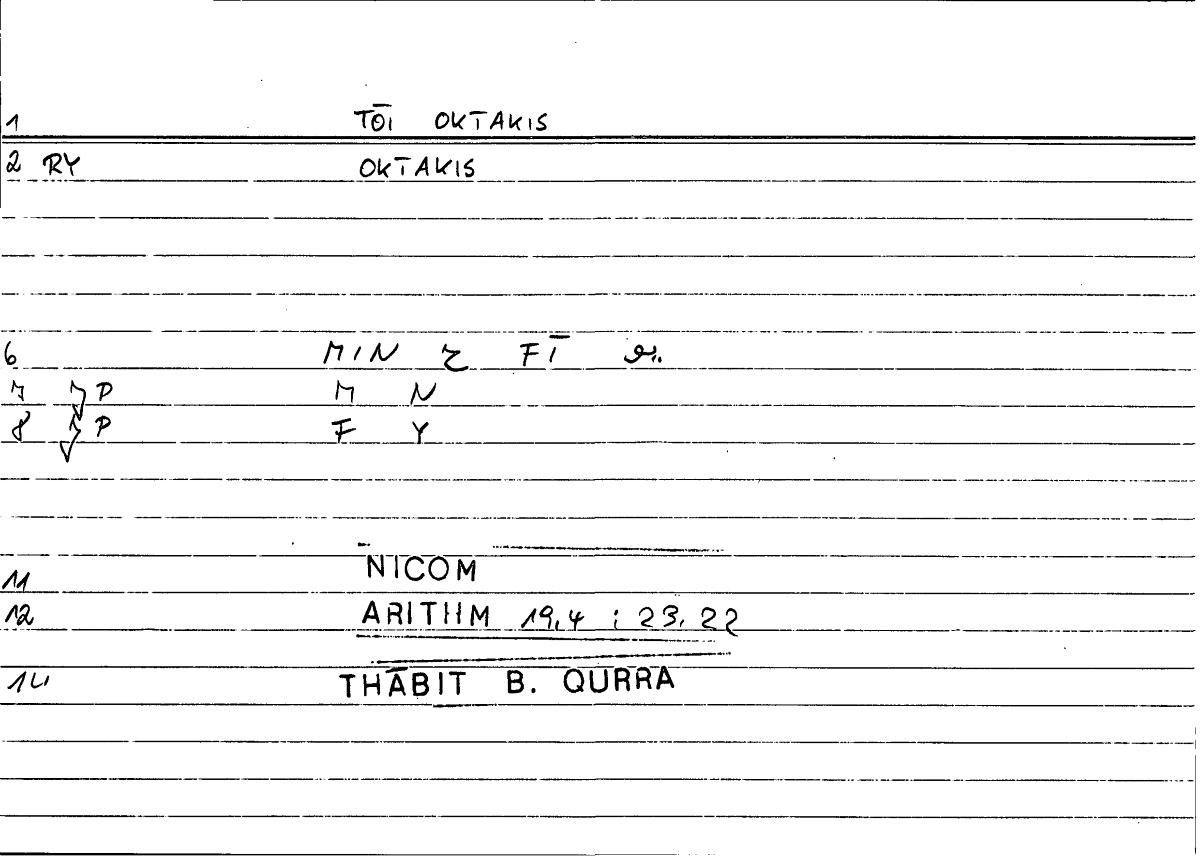 1 TŌI OKTAKIS
2 RY OKTAKIS
6 MIN FĪ
7 P M N
8 P F Y
11 NICOM
12 ARITHM 19,4 ; 23,22
14 THĀBIT B. QURRA